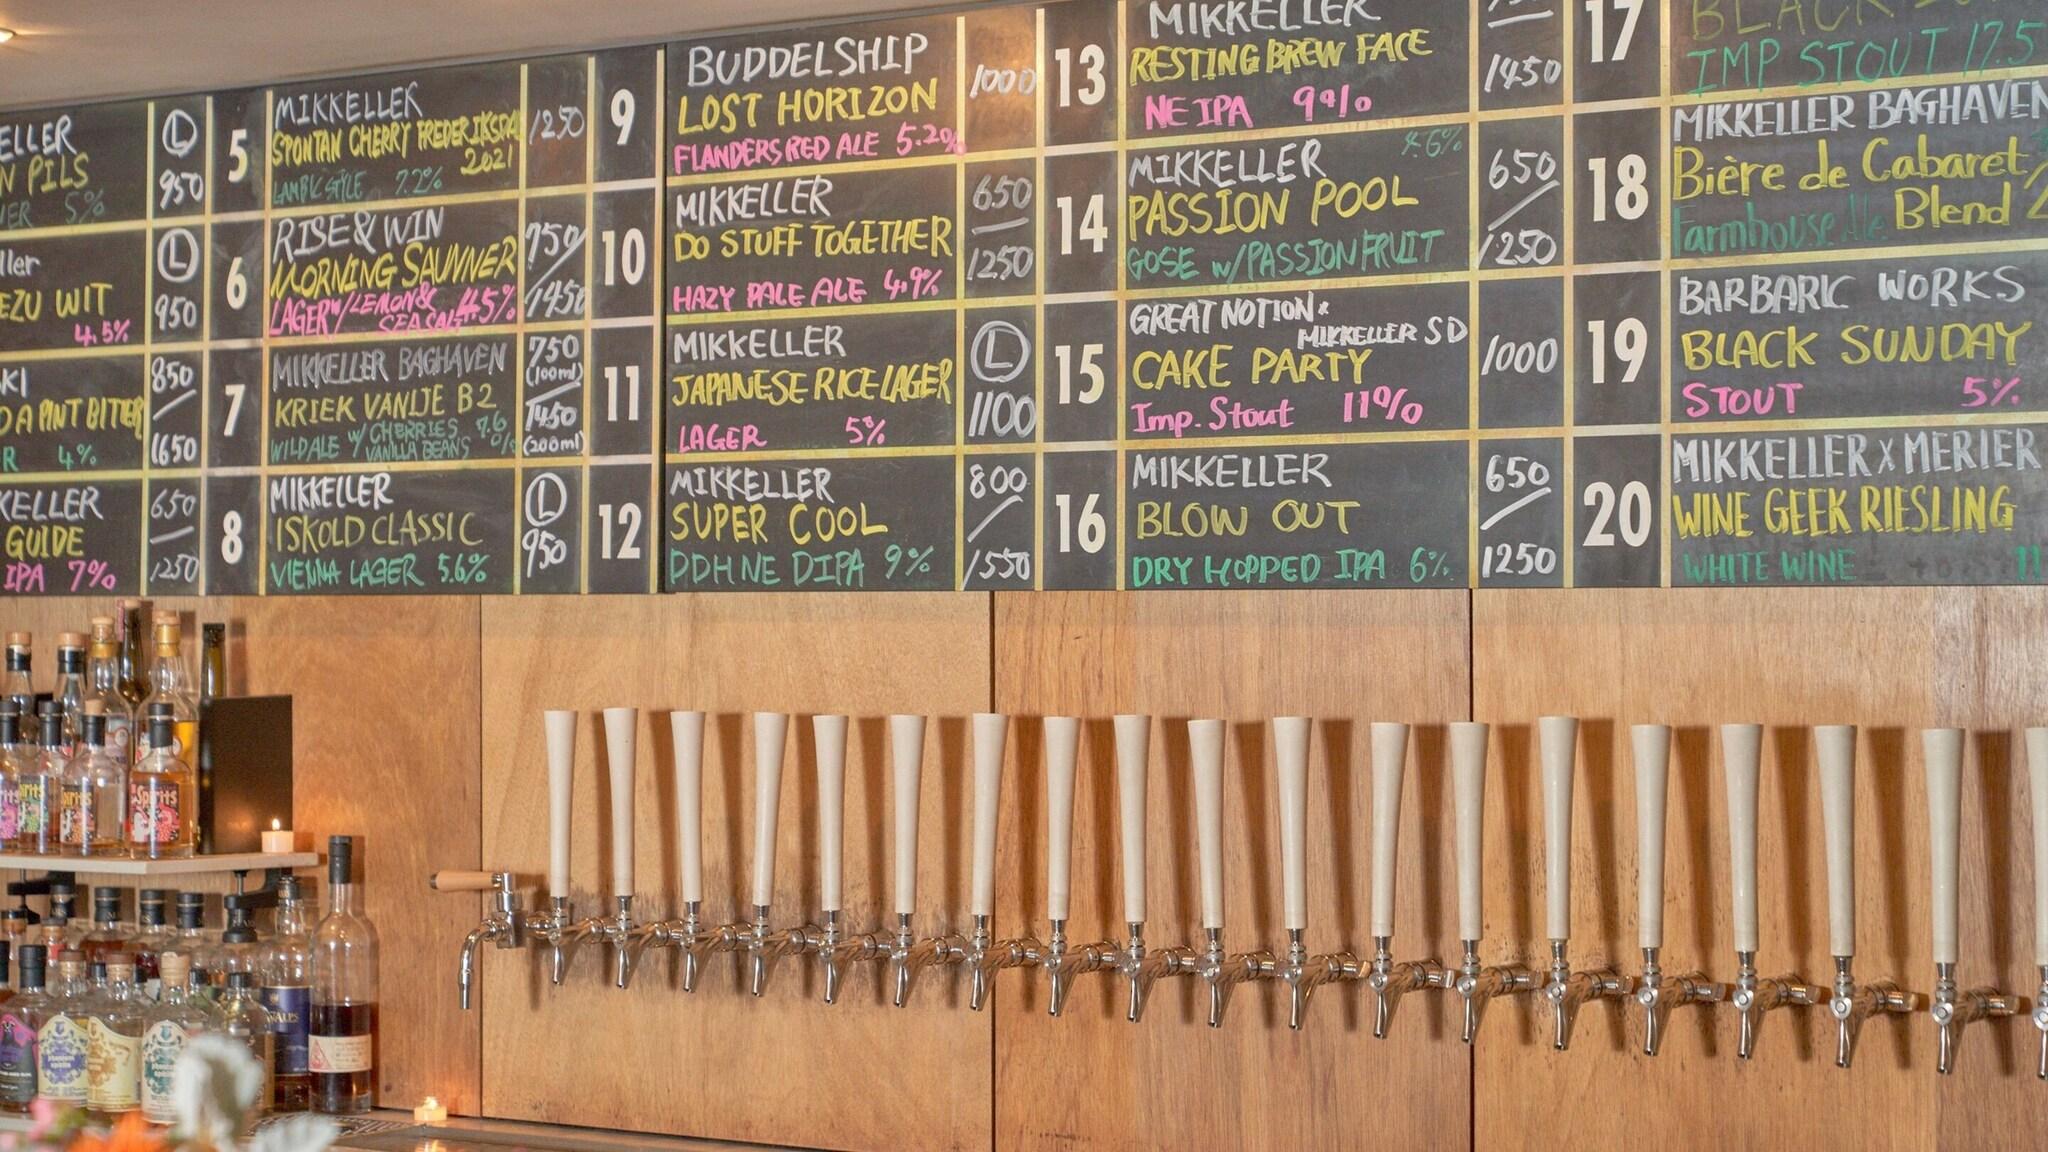 ELLER
N PILS
5%
L
950
ller
EZU WIT
4.5%
L
950
KI
D A PINT BITTER
R 4%
850
1650
KELLER
GUIDE
IPA 7%
650
1250
5
MIKKELLER
SPONTAN CHERRY FREDERIKSDAL
2021
LAMBIC STYLE 7.2%
1250
6
RISE & WIN
MORNING SAUNNER
LAGER W/LEMON &
SEA SALT 4.5%
750
1450
7
MIKKELLER BAGHAVEN
KRIEK VANIJE B2
WILD ALE W/ CHERRIES 7.6
VANILLA BEANS %
750
(100ml)
1450
(200ml)
8
MIKKELLER
ISKOLD CLASSIC
VIENNA LAGER 5.6%
L
950
9
BUDDELSHIP
LOST HORIZON
FLANDERS RED ALE 5.2%
1000
10
MIKKELLER
DO STUFF TOGETHER
HAZY PALE ALE 4.9%
650
1250
11
MIKKELLER
JAPANESE RICE LAGER
LAGER 5%
L
1100
12
MIKKELLER
SUPER COOL
DDH NE DIPA 9%
800
1550
13
MIKKELLER
RESTING BREW FACE
NE IPA 9%
1450
14
MIKKELLER 4.6%
PASSION POOL
GOSE W/PASSION FRUIT
650
1250
15
GREAT NOTION x
MIKKELLER SD
CAKE PARTY
Imp. Stout 11%
1000
16
MIKKELLER
BLOW OUT
DRY HOPPED IPA 6%
650
1250
17
BLACK
IMP STOUT 17.5
18
MIKKELLER BAGHAVEN
Bière de Cabaret
Blend 2
Farmhouse Ale
19
BARBARIC WORKS
BLACK SUNDAY
STOUT 5%
20
MIKKELLER X MERIER
WINE GEEK RIESLING
WHITE WINE 11
Spirits
phantom
spirits